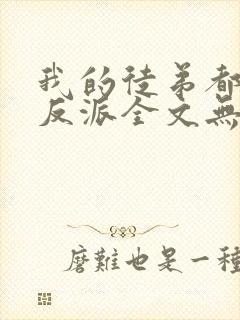 我的徒弟都
反派全文無
磨難也是一種